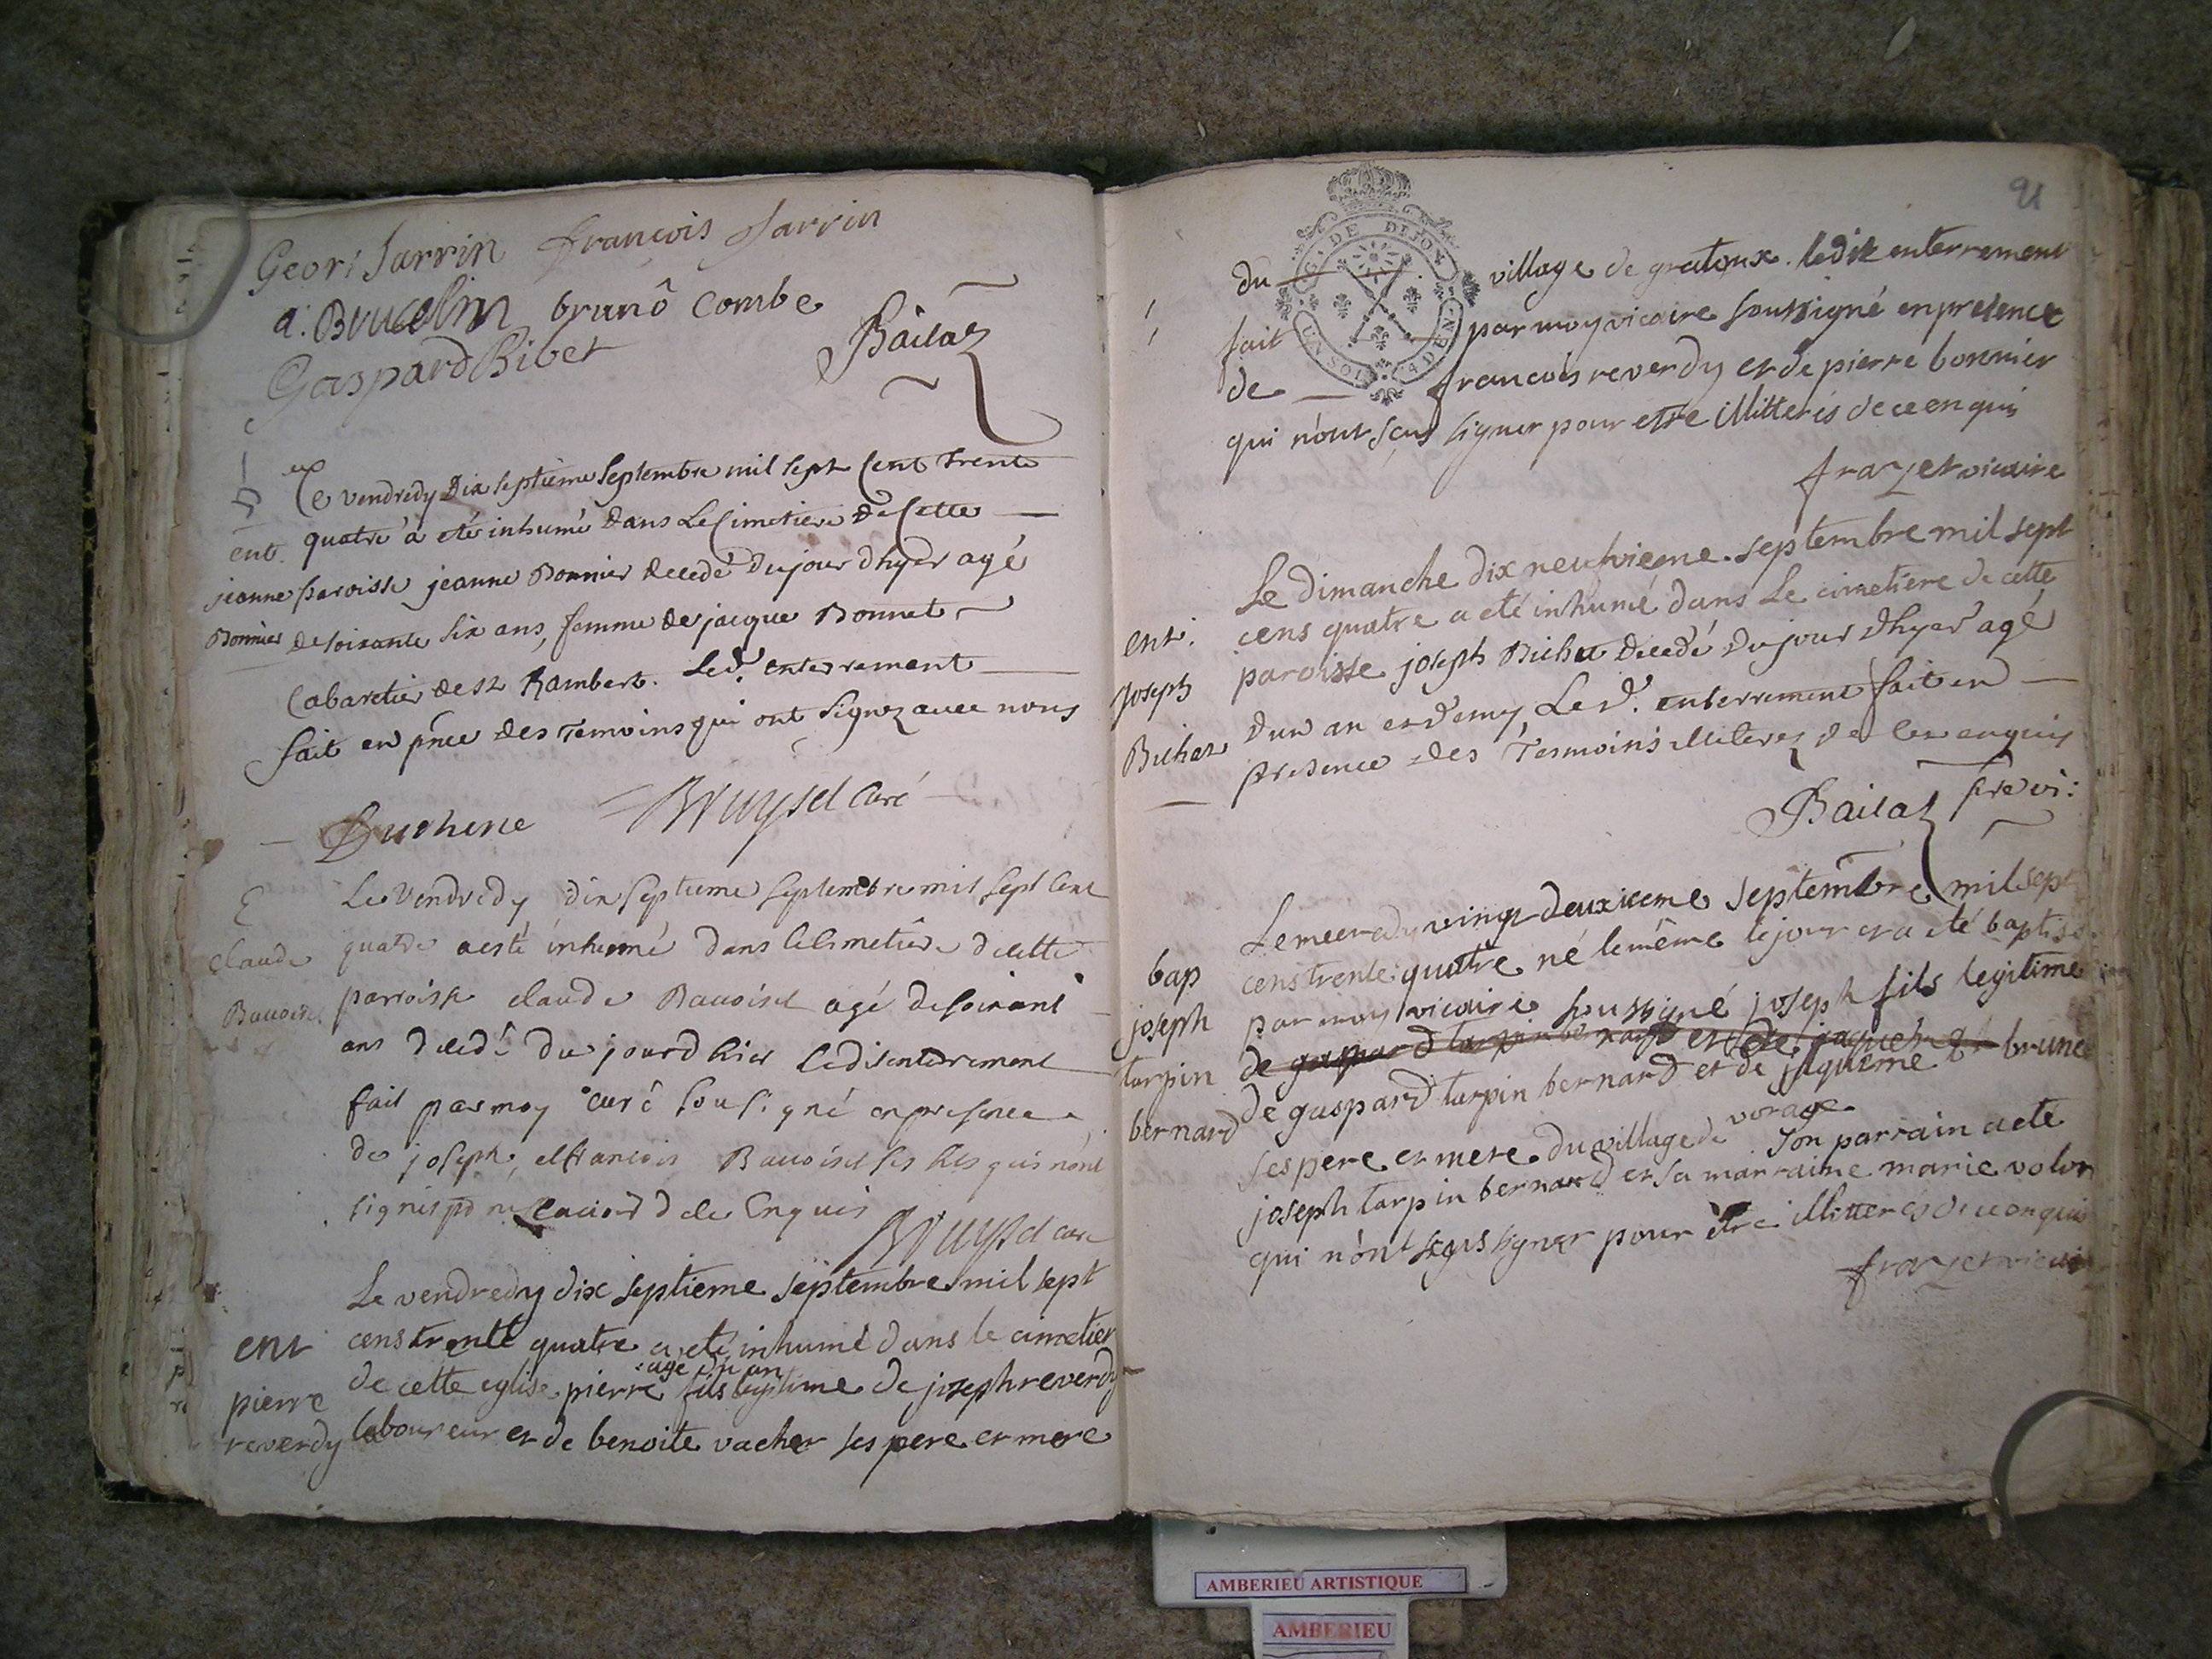 Geor: Sarrin françois Sarrin
a. Brucelin brunô Combe
Gaspard Ribet Bailaz
Le vendredy Dix septieme Septembre mil sept Cent trente
ent. quatre à eté inhumé dans Le Cimetiere de Cette
jeanne paroisse jeanne Bonnier decedé du jour d'hyer agé
Bonnier de soixante six ans, femme de jacque Bonnet
Cabaretier de st Rambert. Led. enterrement
fait en pnce des Temoins qui ont signez avec nous
Duchene Bruysel Curé
Le Vendredy dix septieme septembre mil sept Cent
Claude quatre a esté inhumé dans le Cimetiere de cette
parroisse claude Bauoisel agé de soixant
ans decedé du jourd hier ledit enterrement
fait par moy curé sousigné en presence
de joseph, et francois Bauoisel ses fils qui n'ont
signés de ce Enquis
Bruysel curé
Le vendredy dix septieme septembre mil sept
ent cens trente quatre a eté inhumé dans le cimetier
agé d'un an
pierre de cette eglise pierre fils legitime de joseph reverdy
reverdy laboureur et de benoite vacher ses pere et mere
G. DE DIJON
UN SOL 4 DEN.
91
du village de gratoux. ledit enterrement
fait par moy vicaire soussigné en presence
de francois reverdy et de pierre bonnier
qui n'ont sçus signer pour etre illitterés de ce enquis
frazet vicaire
Le dimanche dix neufvieme septembre mil sept
ent. cens quatre a eté inhumé dans Le cimetiere de cette
Joseph paroisse joseph Bichat decedé du jour d'hyer agé
Bichat d'un an et demy, Le d. enterrement fait en
presence des Tesmoins illiterez de ce enquis
Bailaz pre vi:
Le mecredy vingt deuxieme septembre mil sept
bap cens trente quatre né le même jour et a eté baptisé
joseph par moy vicaire soussigné joseph fils legitime
tarpin de gaspard tarpin bernard et de jaquem brune
bernard de gaspard tarpin bernard et de jaqueme
ses pere et mere du village de vorage son parrain a eté
joseph tarpin bernard et sa marraine marie volor
qui n'ont sçus signer pour être illitterés de ce enquis
frazet vicair
AMBERIEU ARTISTIQUE
AMBERIEU